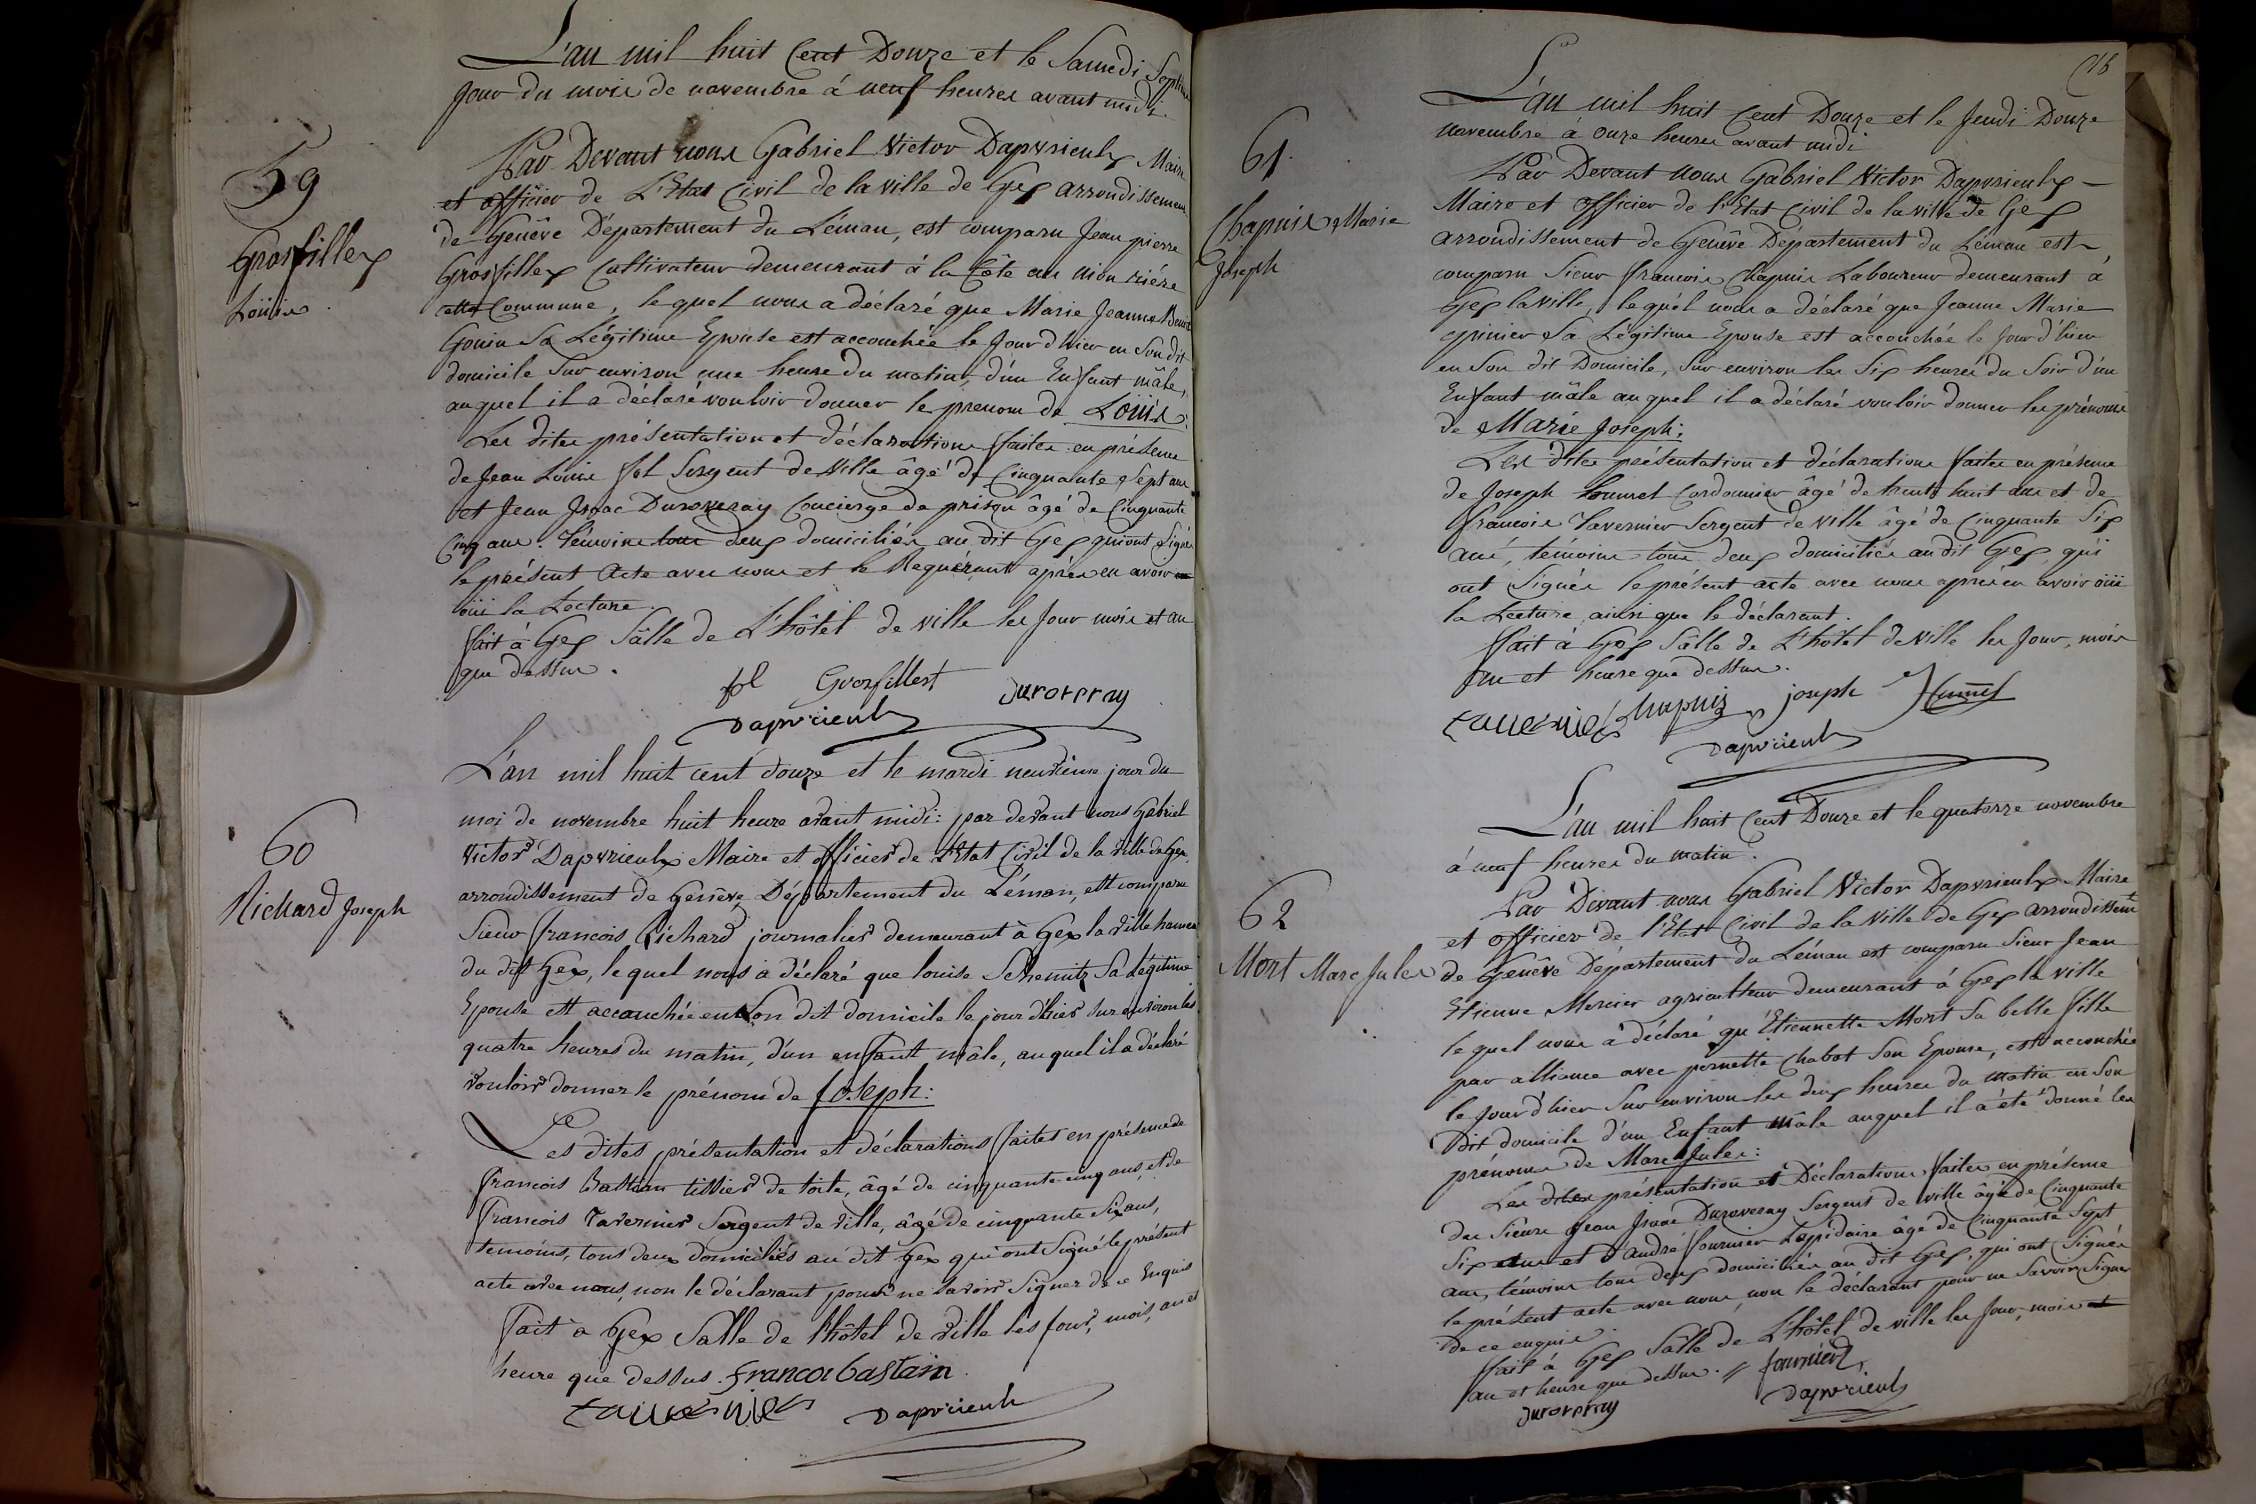 L'an mil huit Cent Douze et le Samedi Septième
Jour du mois de novembre á neuf heures avant midi.
59
Grosfillex
Loüis.
Par Devant nous Gabriel Victor Dapvrieulx Maire
et officier de L'Etat Civil de la ville de Gex arrondissement
de Genêve Département du Léman, est comparu Jean pierre
Grosfillex Cultivateur demeurant á la Côte au rière
cette Commune, le quel nous a déclaré que Marie Jeanne
Gouin Sa Légitime Epouse est accouchée le Jour d'hier en Son dit
domicile Sur environ une heure du matin, d'un Enfant mâle,
auquel il a déclaré vouloir donner le prenom de Loüis.
Les dites présentation et déclarations faites en présence
de Jean Louis fol Sergent de Ville âgé de Cinquante Sept ans
et Jean Isaac Duroveray Concierge de prison âgé de Cinquante
Cinq ans. Témoins tous deux domiciliés au dit Gex qui ont Signé
le présent Acte avec nous et le Requérant après en avoir
oüi la Lecture.
fait á Gex Sâlle de L'hôtel de ville les Jour mois et an
que dessus.
fol Grosfillext Duroveray
Dapvrieulx
60
Richard Joseph
L'an mil huit cent douze et le mardi neuvième jour du
moi de novembre huit heure avant midi: par devant nous Gabriel
Victor Dapvrieulx Maire et officier de l'Etat Civil de la ville de Gex
arrondissement de Genève, Département du Léman, est comparu
Sieur francois Richard journalier demeurant à Gex la ville hameau
du dit Gex, le quel nous a déclaré que louise Schemitz Sa Légitime
Epouse est accouchée en Son dit domicile le jour d'hier sur environ les
quatre heures du matin, d'un enfant mâle, au quel il a déclaré
vouloir donner le prénom de Joseph:
Les dites présentation et déclarations faites en présence de
francois Bastian tissier de toile, âgé de cinquante cinq ans, et de
francois Tavernier Sergent de ville, âgé de cinquante Six ans,
temoins, tous deux domiciliés au dit Gex qui ont Signé le présent
acte avec nous, non le déclarant pour ne Savoir Signer de ce Enquis
fait à Gex Salle de l'hôtel de ville les jour, mois, an et
heure que dessus. francoi bastain
tavernier Dapvrieulx
116
61.
Chapuis Marie
Joseph
L'an mil huit Cent Douze et le Jeudi Douze
novembre à onze heures avant midi
Par Devant nous Gabriel Victor Dapvrieulx
Maire et officier de l'Etat Civil de la ville de Gex
arrondissement de Genêve Département du Léman est
comparu Sieur francois Chapuis Laboureur demeurant à
Gex la ville, le quel nous a déclaré que Jeanne Marie
Epinier Sa Légitime Epouse est accouchée le Jour d'hier
en Son dit Domicile, Sur environ les Six heures du Soir d'un
Enfant mâle au quel il a déclaré vouloir donner les prénoms
de Marie Joseph:
Les dites présentation et déclarations faites en présence
de Joseph Cordonnier âgé de trente huit ans et de
francois Tavernier Sergent de ville âgé de Cinquante Six
ans, témoins tous deux domiciliés au dit Gex, qui
ont Signés le présent acte avec nous apres en avoir oüi
la Lecture, ainsi que le déclarant.
fait à Gex Sâlle de L'hôtel de Ville les Jour, mois
an et heure que dessus.
tavernier Chapuis joseph
Dapvrieulx
62
Mort Marc Jules
L'an mil huit Cent Douze et le quatorze novembre
à neuf heures du matin.
Par Devant nous Gabriel Victor Dapvrieulx Maire
et officier de l'Etat Civil de la Ville de Gex arrondissemt
de Genêve Département du Léman est comparu Sieur Jean
Etienne Mercier agriculteur demeurant à Gex la ville
le quel nous à déclaré qu'Etiennette Mort Sa belle fille
par alliance avec pernette Chabot Son Epouse, est accouchée
le Jour d'hier Sur environ les deux heures du matin en Son
Dit domicile d'un Enfant mâle auquel il à été donné les
prénoms de Marc Jules:
Les dites présentation et Déclarations faites en présence
des Sieurs Jean Isaac Duroveray Sergent de ville âgé de Cinquante
Six ans et d'andré fournier Lapidaire âgé de Cinquante Sept
ans, témoins tous deux domiciliés au dit Gex, qui ont Signés
le présent acte avec nous, non le déclarant pour ne Savoir Signer
de ce enquis.
fait à Gex Salle de L'hôtel de ville les Jour, mois et
an et heure que dessus. fournier
Duroveray Dapvrieulx